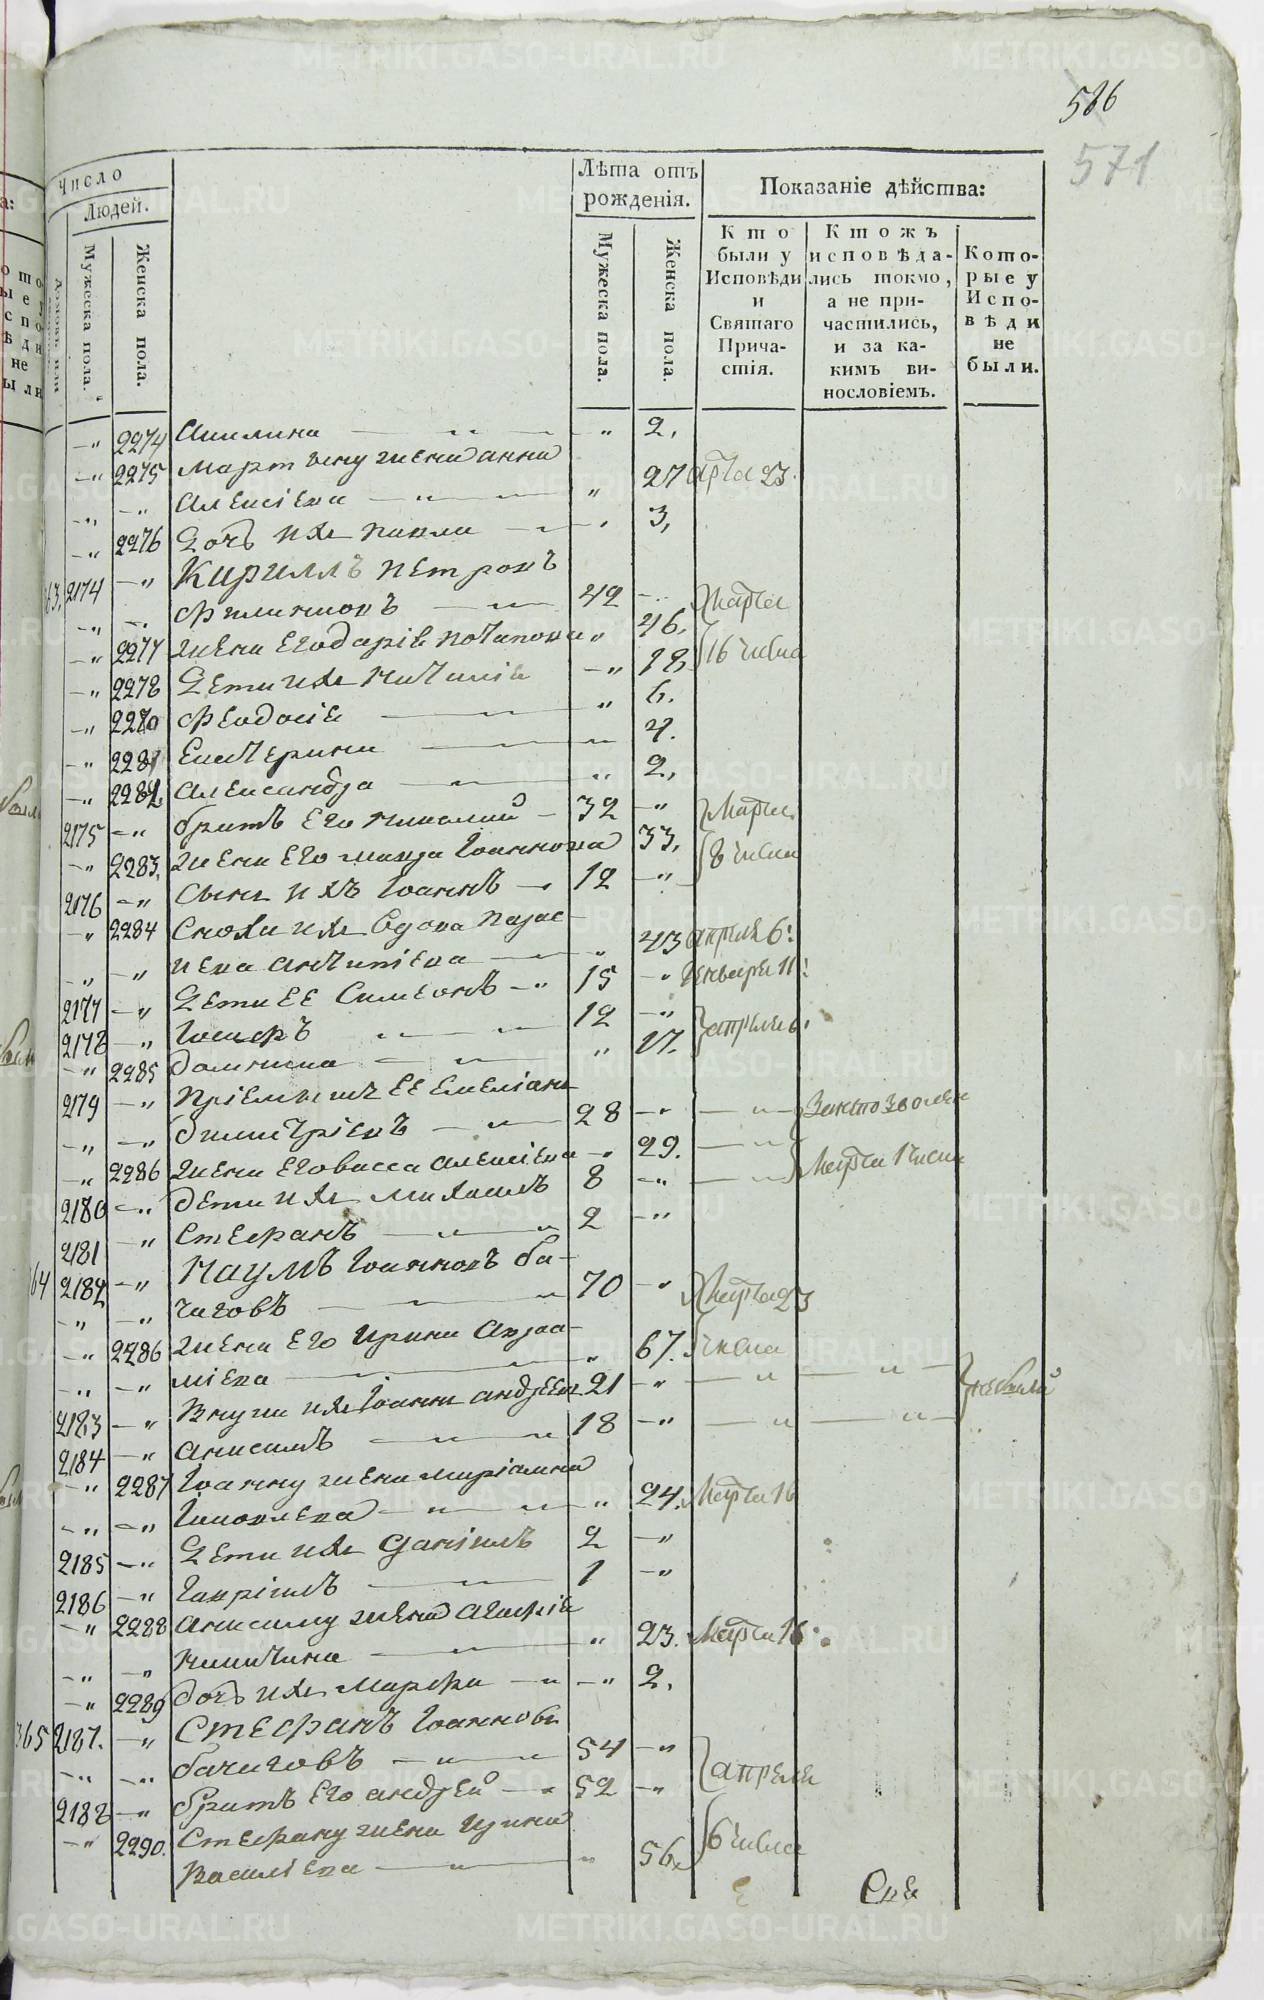 586
571
Число
Людей.
Мужеска пола.
Женска пола.
Лѣта отъ рожденія.
Мужеска пола.
Женска пола.
Показаніе дѣйства:
Кто были у Исповѣди и Святаго Причастія.
Ктожъ исповѣдались токмо, а не причастились, и за какимъ винословіемъ.
Которые у Исповѣди не были.
-" 2274 Акилина - " 2,
-" 2275 Мартину жена анна
-" -" Алексіева - " 27 Марта 23.
-" 2276 Дочь ихъ Павла - " 3,
63, 2174 -" Кириллъ Петровъ
-" -" Филимонъ - 42 -" Марта
-" 2277 Жена Его дарія Потапова " 46. 16 числа
-" 2278 Дети ихъ Наталія -" 18,
-" 2280 Феодосія - " 6.
-" 2281 Екатерина - " 4.
-" 2282. Александра - " 2,
2175 -" братъ Его Николай - 32 -" Марта
-" 2283. Жена Его Мавра Іоаннова 33, 8 числа
2176 -" Сынъ ихъ Іоаннъ - 12 -"
-" 2284 Сноха ихъ вдова Парас-
-" -" кева Антипіева - " 43 апреля 6:
2177 -" Дети ЕЕ Симеонъ -" 15 -" Генваря 11:
2178 -" Іосифъ " - 12 -" апреля 6:
-" 2285 домника - " 17.
2179 -" Пріемышъ ЕЕ Емеліанъ
-" -" димитріевъ - 28 -" - " -
-" 2286 Жена Его васса Алексіева -" 29. - " - Марта 1 числа
2180 -" дети ихъ Михаилъ 8 -" - " -
2181 -" Стефанъ - " 2 -"
64 2182 -" Наумъ Іоанновъ ба-
-" -" чиговъ - " 70 -" Марта 23
-" 2286 Жена Его Ирина Авраа-
-" -" міева - " 67. числа
2183 -" Внуки ихъ Іоаннъ андреевъ 21 -" - " - " - небыли
2184 -" Анисимъ - " 18 -" - " - " -
-" 2287 Іоанну жена Маріамна
-" -" Іаковлева - " 24. Марта 16
2185 -" Дети ихъ Даніилъ 2 -"
2186 -" Гавріилъ - 1 -"
-" 2288 Анисиму жена Агафія
-" -" Никитина - " 23. Марта 16
-" 2289 дочь ихъ Марфа - " -" 2.
365 2187. -" Стефанъ Іоанновъ
-" -" бачиговъ - " 54 -" апреля
2188 -" братъ Его андрей - " 52 -"
-" 2290. Стефану жена Ирина
Василіева - " 56. 6 числа